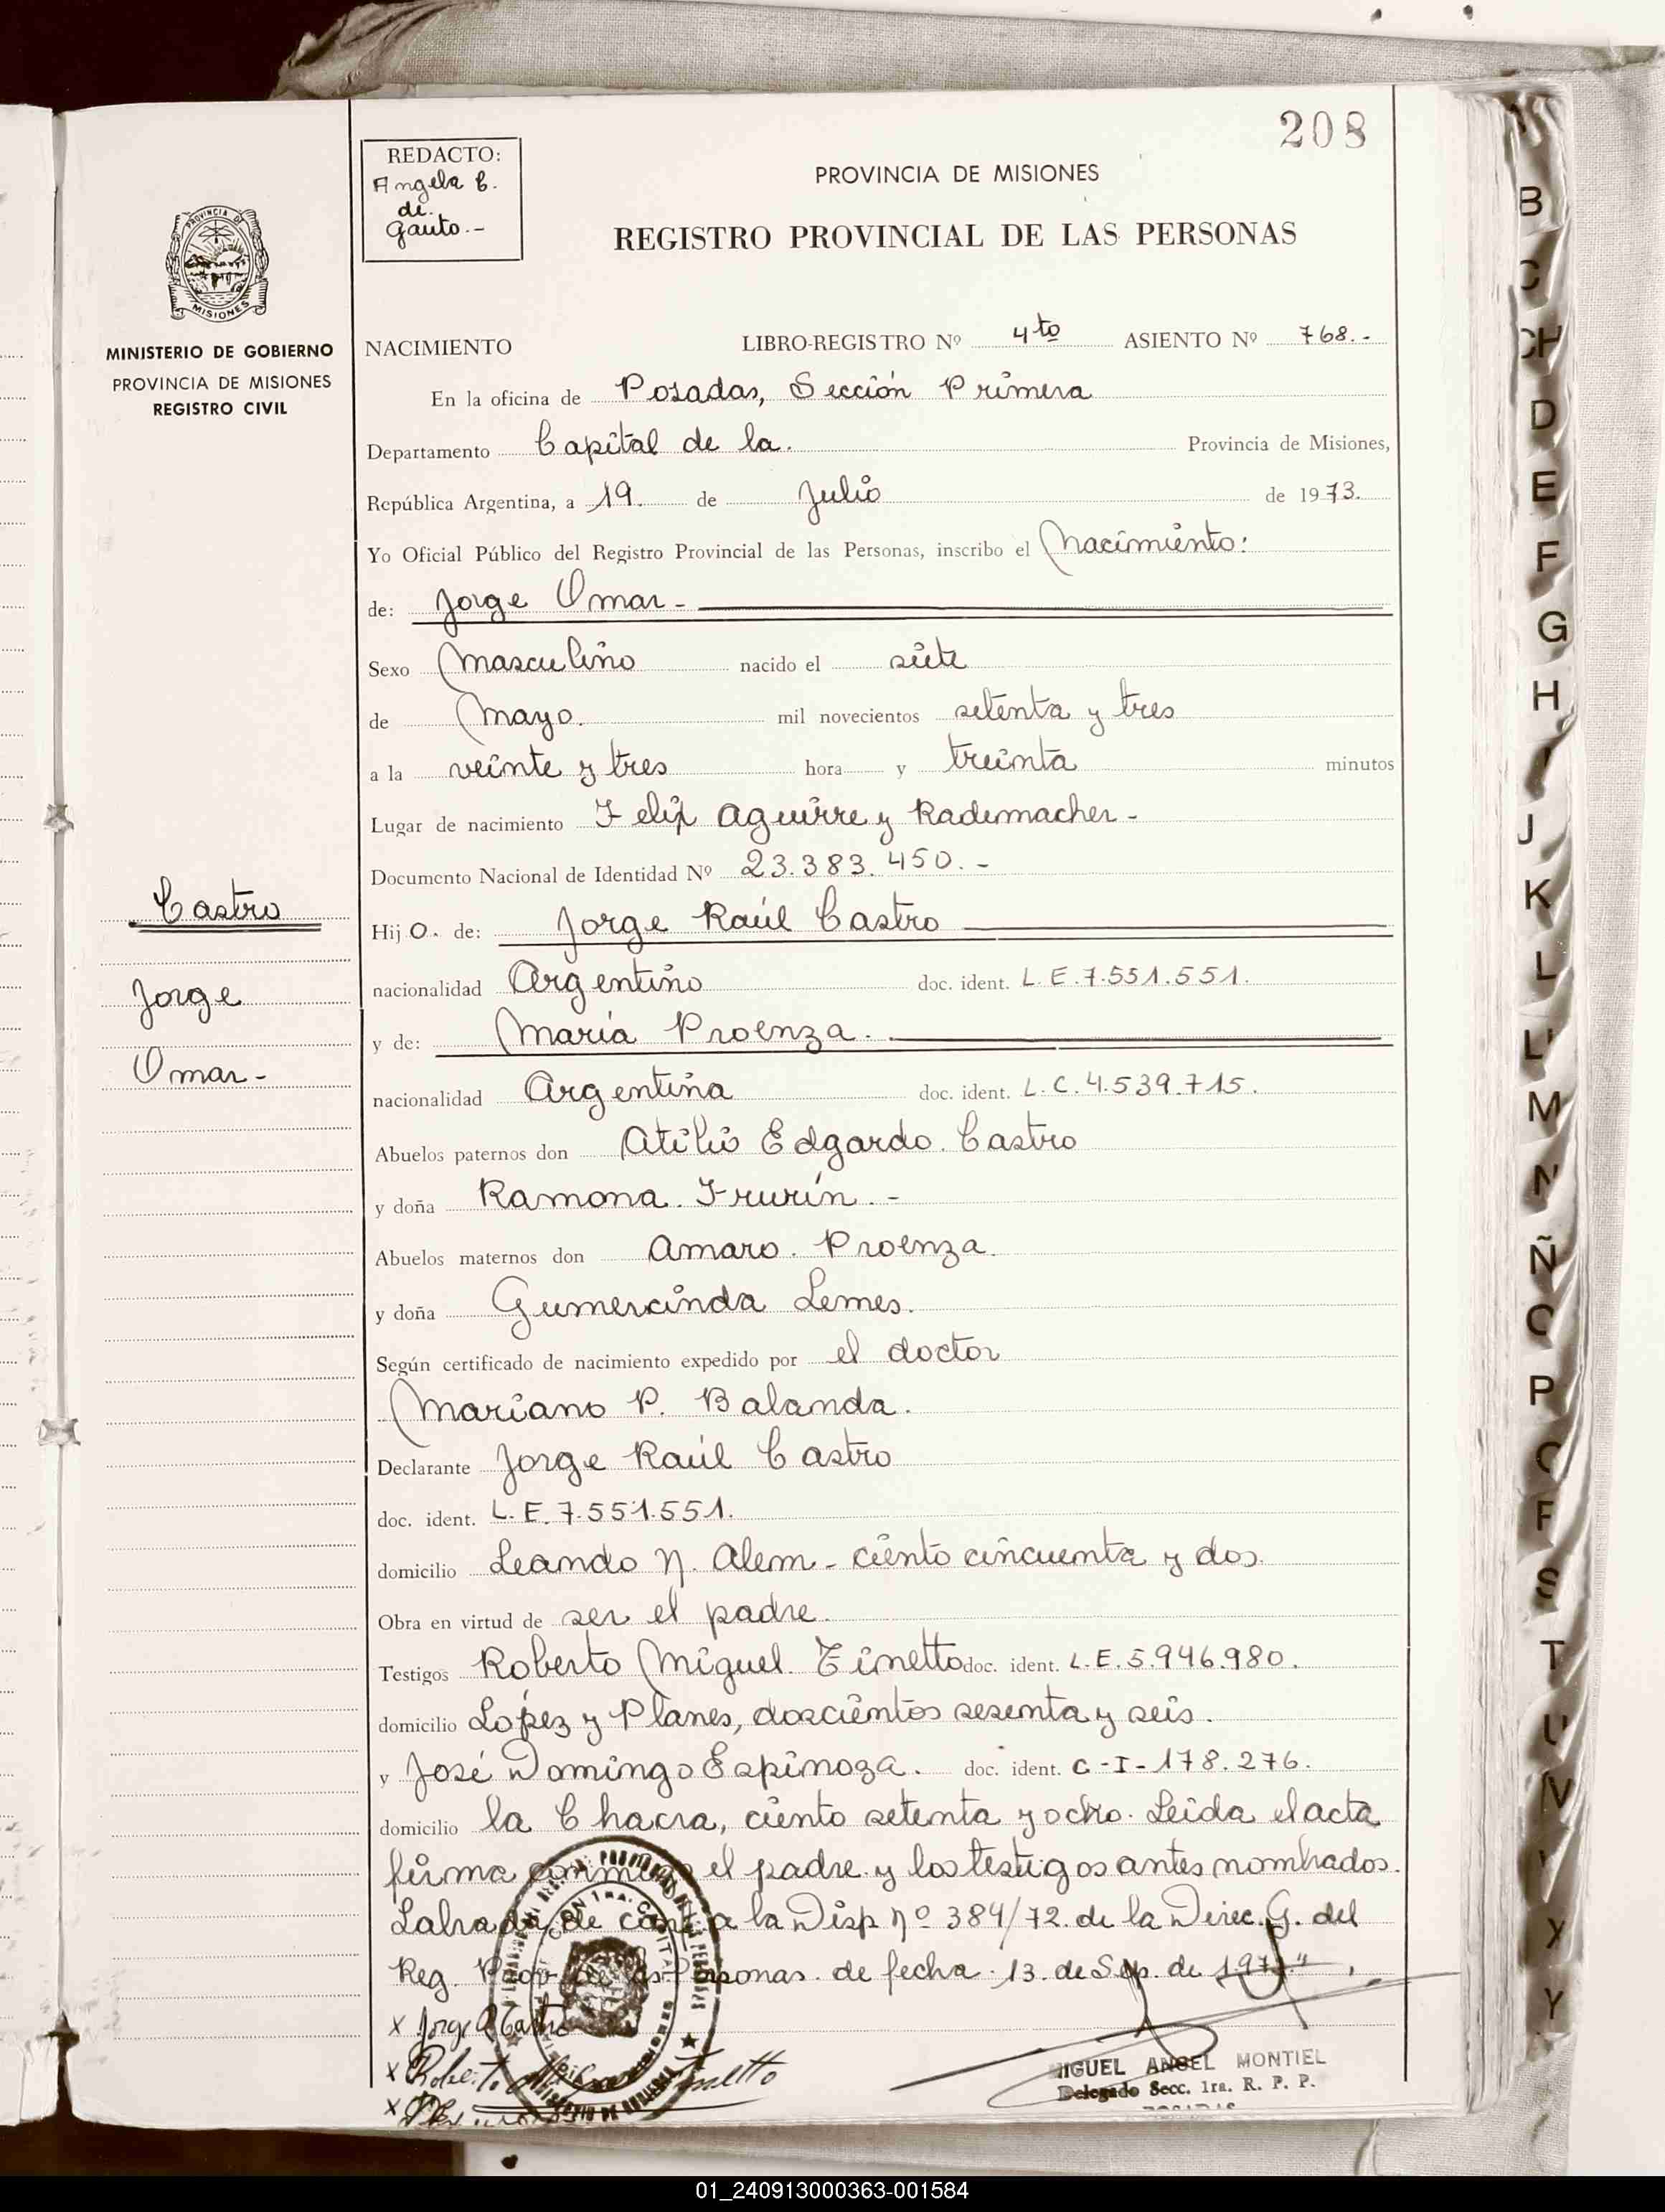 208
REDACTO:
Angela C.
de.
Gauto.-
PROVINCIA DE MISIONES
REGISTRO PROVINCIAL DE LAS PERSONAS
PROVINCIA DE
MISIONES
MINISTERIO DE GOBIERNO
PROVINCIA DE MISIONES
REGISTRO CIVIL
NACIMIENTO LIBRO-REGISTRO Nº 4to ASIENTO Nº 768.-
En la oficina de Posadas, Sección Primera
Departamento Capital de la. Provincia de Misiones,
República Argentina, a 19. de Julio de 1973.
Yo Oficial Público del Registro Provincial de las Personas, inscribo el Nacimiento:
de: Jorge Omar-
Sexo Masculino nacido el siete
de Mayo. mil novecientos setenta y tres
a la veinte y tres hora y treinta minutos
Lugar de nacimiento Felix Aguirre y Rademacher-
Documento Nacional de Identidad Nº 23.383.450.-
Castro
Jorge
Omar-
Hij o. de: Jorge Raúl Castro
nacionalidad Argentino doc. ident. L.E.7.551.551.
y de: María Proenza.
nacionalidad Argentina doc. ident. L.C.4.539.715.
Abuelos paternos don Atilio Edgardo. Castro
y doña Ramona. Frurín.-
Abuelos maternos don Amaro. Proenza.
y doña Gumercinda Lemes.
Según certificado de nacimiento expedido por el doctor
Mariano P. Balanda.
Declarante Jorge Raúl Castro
doc. ident. L.E.7.551.551.
domicilio Leando N. Alem- ciento cincuenta y dos.
Obra en virtud de ser el padre.
Testigos Roberto Miguel Tinetto doc. ident. L.E.5.946.980.
domicilio López y Planes, doscientos sesenta y seis.
y José Domingo Espinoza. doc. ident. C-I-178.276.
domicilio la Chacra, ciento setenta y ocho. Leida el acta
firma conmigo el padre y los testigos antes nombrados.
Labrada de conf. a la Disp Nº 384/72. de la Direc. G. del
Reg. de las Personas. de fecha 13. de Sep. de
x Jorge R Castro
x Roberto Miguel Tinetto
x
MIGUEL ANGEL MONTIEL
Delegado Secc. 1ra. R. P. P.
POSADAS
B
C
CH
D
E
F
G
H
I
J
K
L
LL
M
N
Ñ
O
P
Q
S
T
U
V
X
Y
01_240913000363-001584